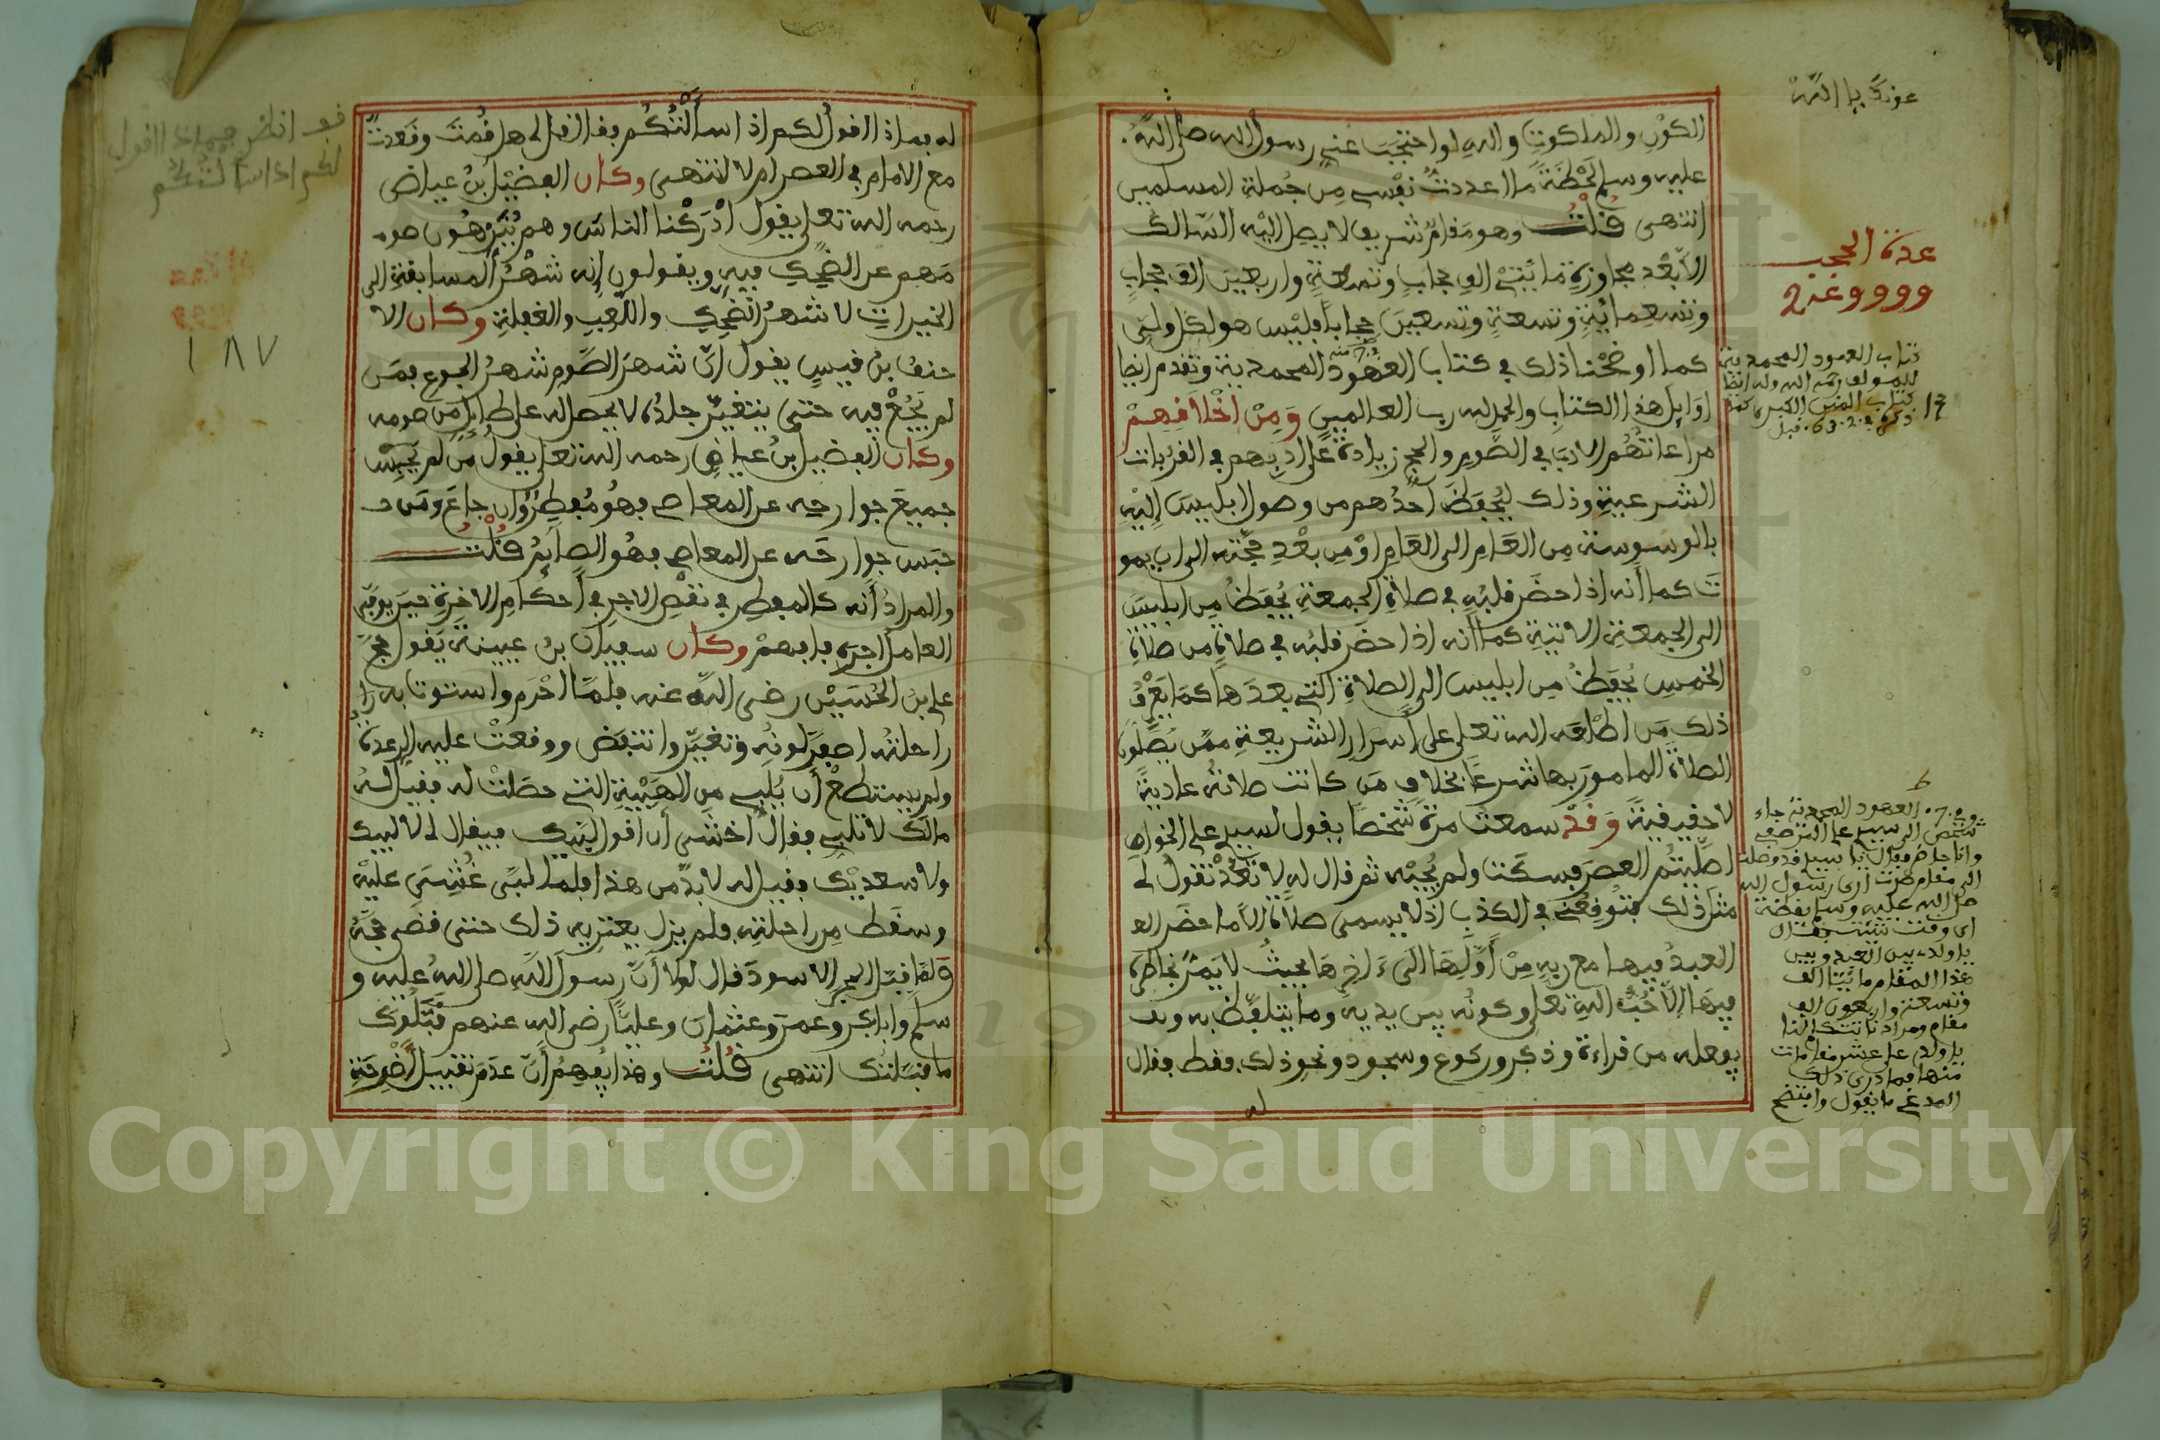 عونك يا الله
الكون والملكوت والله لو احتجب عني رسول الله صلى الله
عليه وسلم لحظة ما اعددت نفسي من جملة المسلمين
انتهى قلت وهو مقام شريف لا يصل اليه السالك
الا بعد مجاوزة مائتي الف حجاب وتسعة واربعين الف حجاب
وتسعمائة وتسعة وتسعين حجابا فليس هو لكل ولي
كما اوضحنا ذلك في كتاب العهود المحمدية وتقدم ايضا
اوايل هذا الكتاب والحمد لله رب العالمين ومن اخلاقهم
مراعاتهم الادب في الصوم والحج زيادة على ادبهم في القربات
الشرعية وذلك ليحفظ احدهم من وصول ابليس اليه
بالوسوسة من العام الى العام او من بعد حجته الى ان يمو
ت كما انه اذا حضر قلبه في صلاة الجمعة يحفظ من ابليس
الى الجمعة الاتية كما انه اذا حضر قلبه في صلاة من صلاة
الخمس يحفظ من ابليس الى الصلاة التي بعدها كما يعرف
ذلك من اطلعه الله تعلى على اسرار الشريعة ممن يصلون
الصلاة المامور بها شرعا بخلاف من كانت صلاته عادية
لا حقيقية وقد سمعت مرة شخصا يقول لسيدي علي الخواص
اصليتم العصر فسكت ولم يجبه ثم قال له لا تعد تقول لي
مثل ذلك فتوقعني في الكذب اذ لا يسمى صلاة الا ما حضر
العبد فيها مع ربه من اولها الى ءاخرها بحيث لا يمر بخاطره
فيها الا حب الله تعلى وكونه بين يديه وما يتلفظ به و
يفعله من قراءة وذكر وركوع وسجود ونحو ذلك فقط فقال
له
عدة الحجب
كتاب العهود المحمدية
للمولف رحمه الله وله ايضا
كتاب المنن الكبرى
العهود المحمدية جاء
شخص الى سيدي علي المرصفي
وانا حاضر فقال يا سيدي قد وصلت
الى مقام صرت ارى رسول الله
صلى الله عليه وسلم يقظة
اي وقت شئت فقال
يا ولدي بين العبد وبين
هذا المقام مائتا الف
وتسعة واربعون الف
مقام ومرادنا تتكلم لنا
يا ولدي على عشر مقامات
منها فما درى ذلك
المدعي ما يقول وافتضح
له بماذا اقول لكم اذا سألتكم فقال قل لي هل قمت وقعدت
مع الامام في العصر ام لا انتهى وكان الفضيل بن عياض
رحمه الله تعلى يقول ادركنا الناس وهم ينزهون صو
مهم عن الضحك فيه ويقولون إنه شهر المسابقة الى
الخيرات لا شهر الضحك واللعب والغفلة وكان الا
حنف بن قيس يقول ان شهر الصوم شهر الجوع فمن
لم يجع فيه حتى يتغير جلده لا يحصل له على طايل من صومه
وكان الفضيل بن عياض رحمه الله تعلى يقول من لم يحبس
جميع جوارحه عن المعاصي فهو مفطر وان جاع ومن
حبس جوارحه عن المعاصي فهو الصايم قلت
والمراد أنه كالمفطر في نقص الاجر في أحكام الاخرة حين يوفى
العامل اجره فافهم وكان سفيان بن عيينة يقول حج
علي بن الحسين رضي الله عنه فلما احرم واستوت به
راحلته اصفر لونه وتغير وانتفض ووقعت عليه الرعدة
ولم يستطع أن يلبي من الهيبة التي حصلت له فقيل له
مالك لا تلبي فقال اخشى أن اقول لبيك فيقال لي لا لبيك
ولا سعديك فقيل له لا بد من هذا فلما لبى غشي عليه
وسقط من راحلته فلم يزل يعتريه ذلك حتى قضى حجه
ولما قبل الحجر الاسود قال لولا أن رسول الله صلى الله عليه و
سلم وابا بكر وعمر وعثمان وعليا رضي الله عنهم قبلوك
ما قبلتك انتهى قلت وهذا يفهم أن عدم تقبيل الاضرحة
لكم اذا سألتكم
١٨٧
Copyright © King Saud University